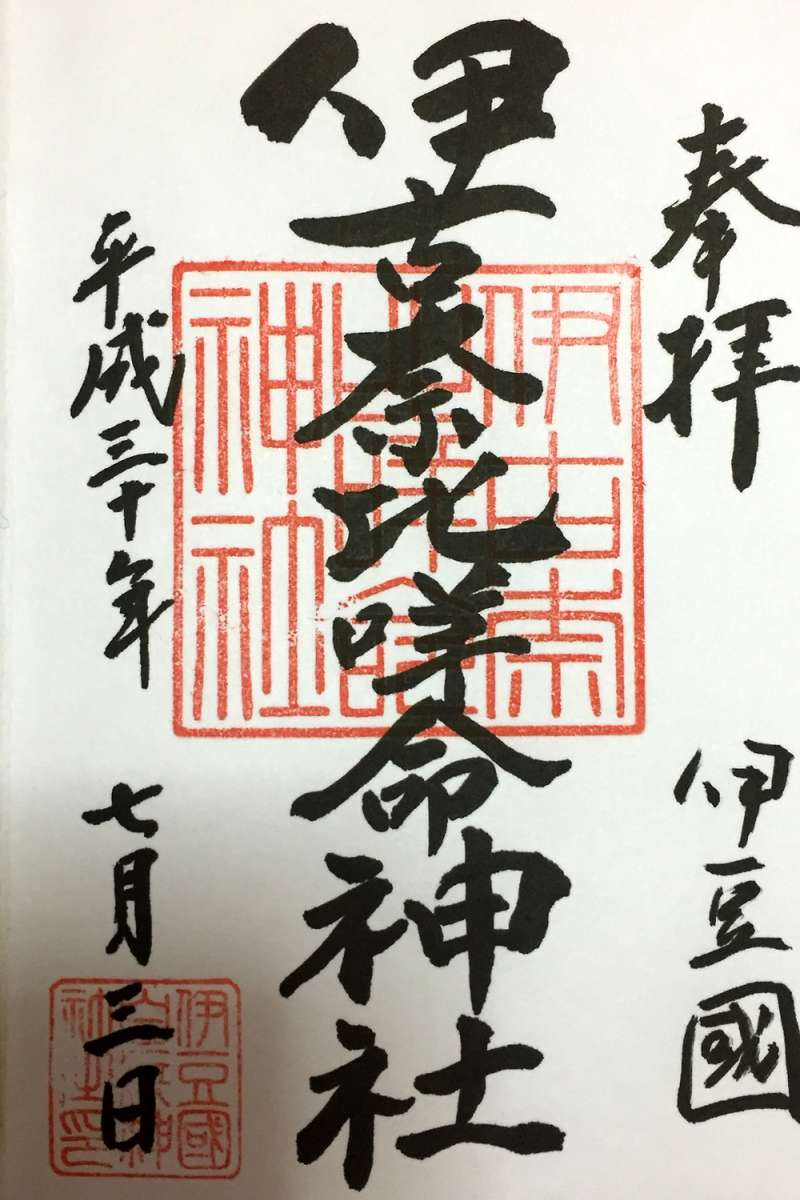 奉拝
伊豆國
伊古奈比咩命神社
平成三十年
七月三日
伊古奈
比咩命
神社
伊豆國
白濱神
社之印